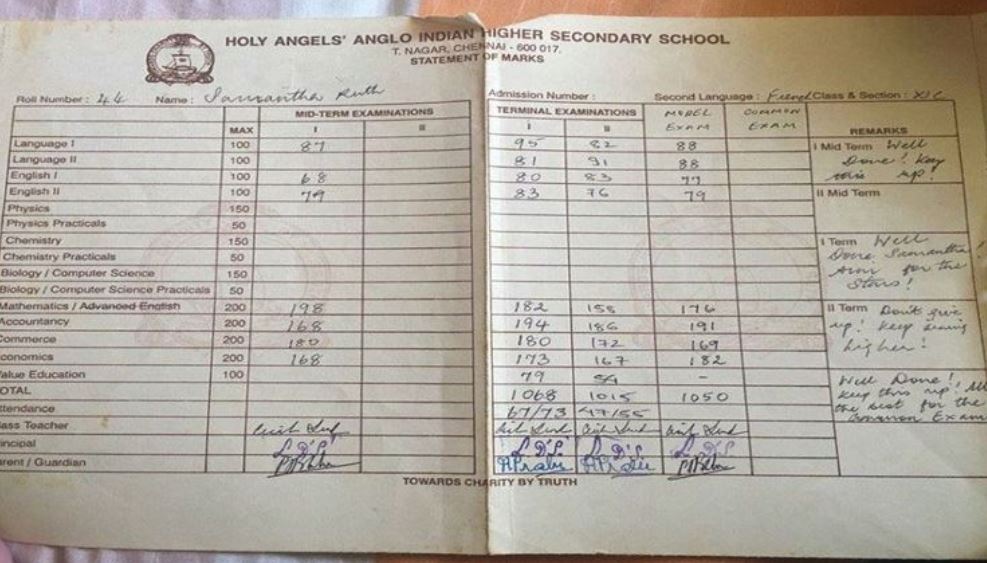 HOLY ANGELS' ANGLO INDIAN HIGHER SECONDARY SCHOOL
T. NAGAR, CHENNAI - 600 017.
STATEMENT OF MARKS
Roll Number : 44 Name : Samantha Ruth Admission Number : Second Language : French Class & Section : XI C
MID-TERM EXAMINATIONS TERMINAL EXAMINATIONS MODEL EXAM COMMON EXAM REMARKS
MAX I II I II
Language I 100 87 95 82 88 I Mid Term Well
Language II 100 81 91 88 Done! Keep
English I 100 68 80 83 77 this up!
English II 100 79 83 76 79 II Mid Term
Physics 150
Physics Practicals 50
Chemistry 150 I Term Well
Chemistry Practicals 50 Done Samantha!
Biology / Computer Science 150 Aim for the
Biology / Computer Science Practicals 50 Stars!
Mathematics / Advanced English 200 198 182 158 176 II Term Don't give
Accountancy 200 168 194 186 191 up! Keep aiming
Commerce 200 180 180 172 169 higher!
conomics 200 168 173 167 182
alue Education 100 79 54 - Well Done!
OTAL 1068 1015 1050 Keep this up. All
ttendance 67/73 47/55 the best for the
ass Teacher Common Exam
incipal
rent / Guardian
TOWARDS CHARITY BY TRUTH